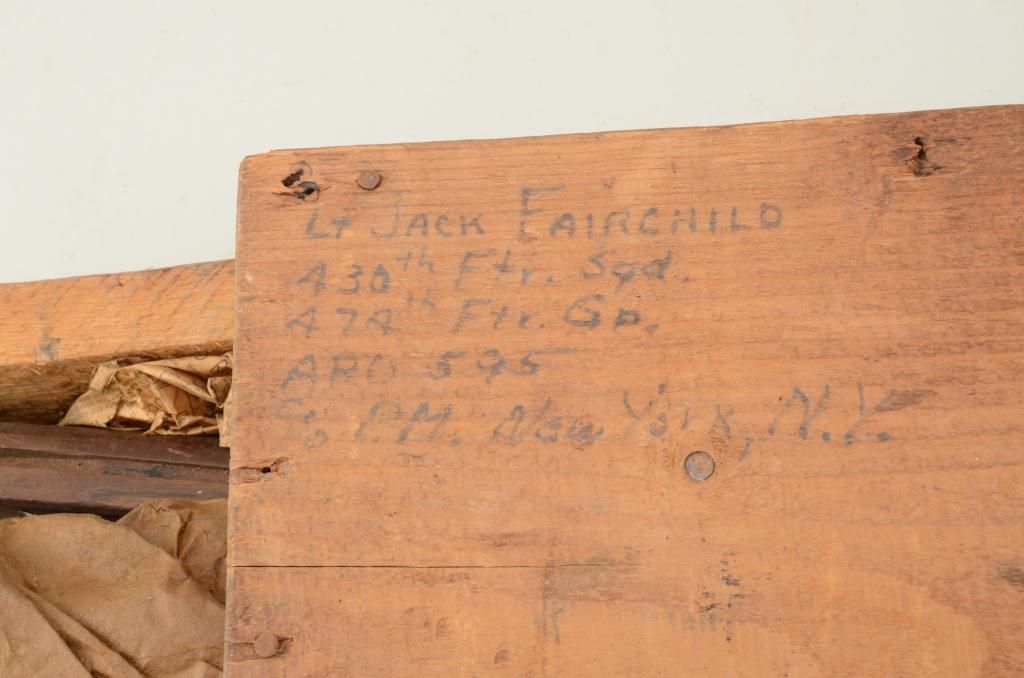 Lt Jack Fairchild
430th Ftr. Sqd.
474th Ftr. Gp.
APO 595
c/o P.M. New York, N.Y.